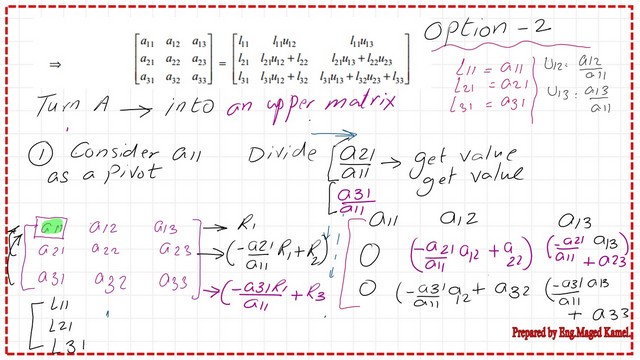 Option-2
⇒ [a11 a12 a13; a21 a22 a23; a31 a32 a33] = [l11 l11u12 l11u13; l21 l21u12 + l22 l21u13 + l22u23; l31 l31u12 + l32 l31u13 + l32u23 + l33]
L11 = a11
L21 = a21
L31 = a31
U12: a12/a11
U13: a13/a11
Turn A → into an upper matrix
① Consider a11 as a Pivot
Divide [a21/a11 → get value
[a31/a11 get value
a11 a12 a13 → R1
a21 a22 a23 → (-a21/a11 R1 + R2)
a31 a32 a33 → (-a31R1/a11 + R3
a11 a12 a13
0 (-a21/a11 a12 + a22) (-a21/a11 a13) + a23
0 (-a31/a11 a12 + a32 (-a31/a11 a13 + a33
L11
L21
L31
Prepared by Eng.Maged Kamel.